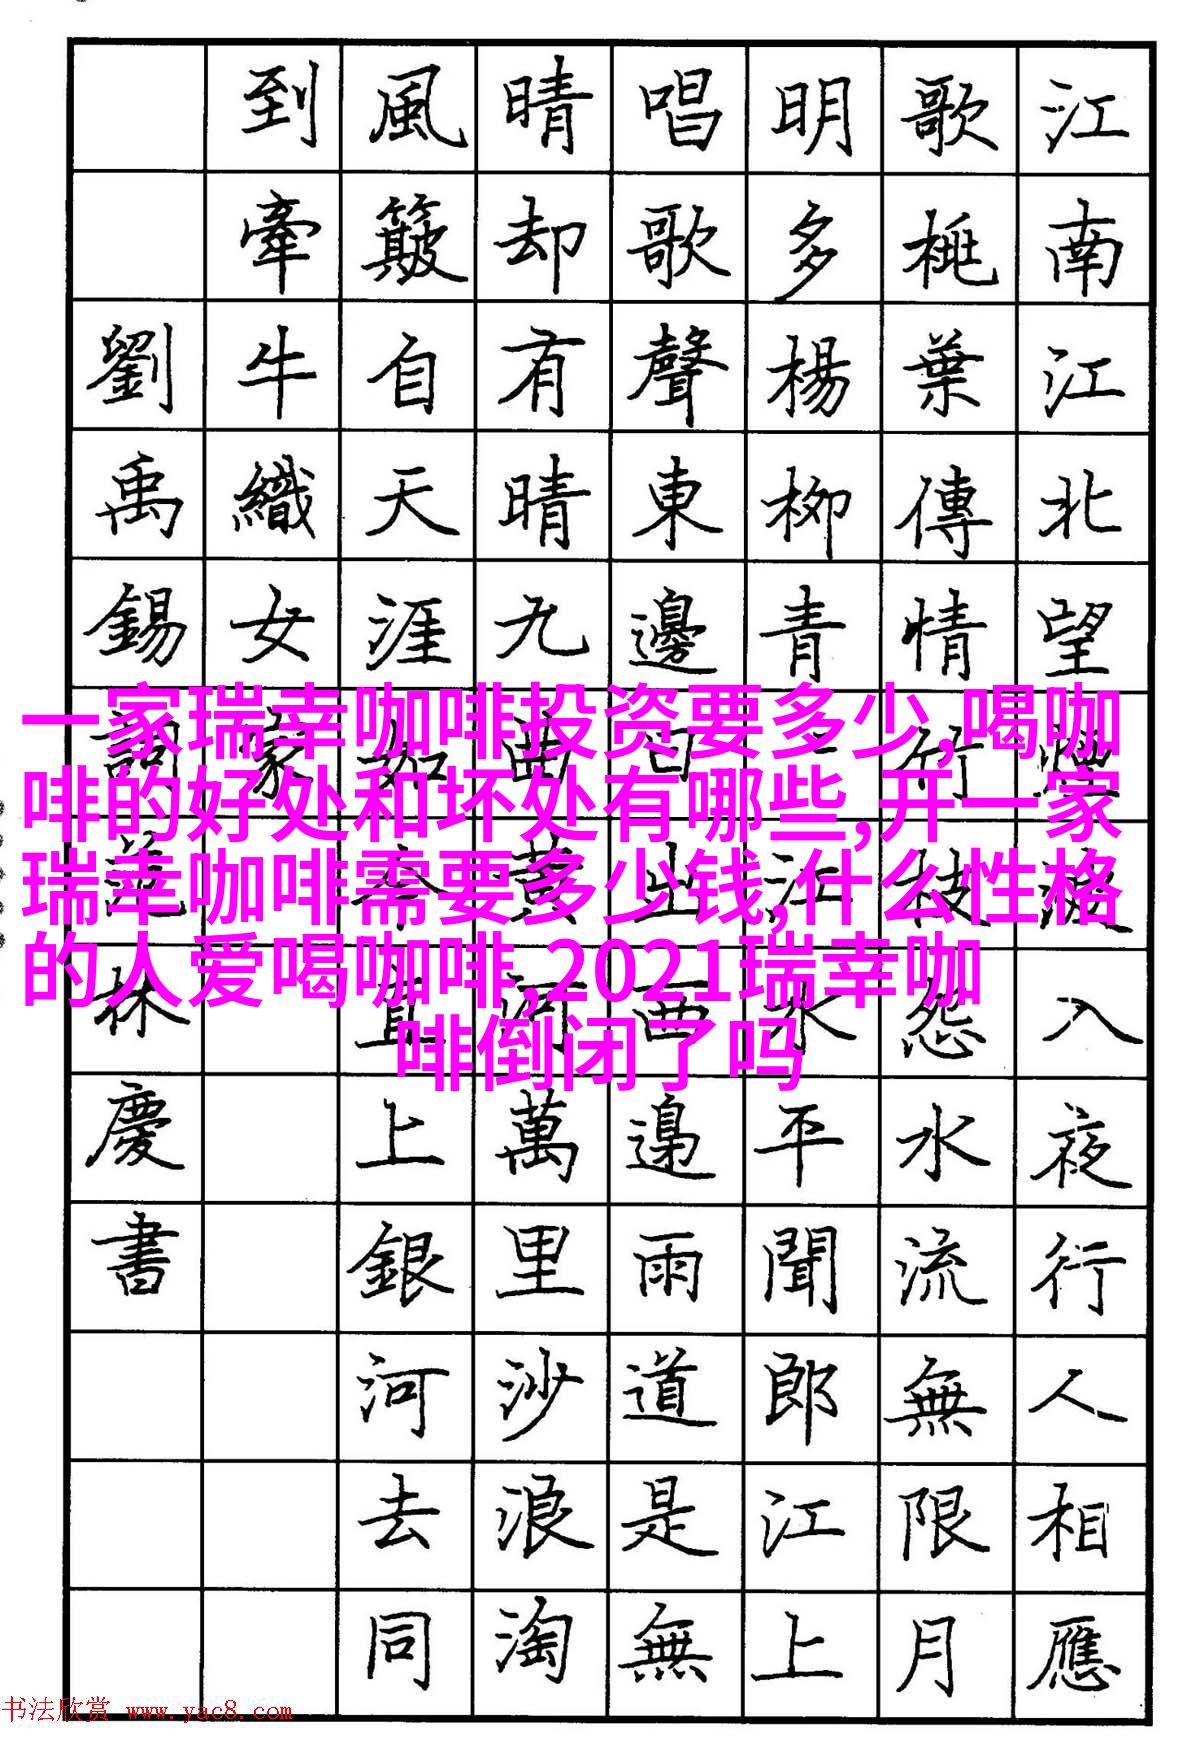 江南江北望煙波入夜行人相應
歌桃葉傳情竹枝怨水流無限月
明多楊柳青青江水平聞郎江上
唱歌聲東邊日出西邊雨道是無
晴却有晴九曲黃河萬里沙浪淘
風簸自天涯如今直上銀河去同
到牽牛織女家
劉禹錫詞范林慶書
一家瑞幸咖啡投资要多少,喝咖
啡的好处和坏处有哪些,开一家
瑞幸咖啡需要多少钱,什么性格
的人爱喝咖啡,2021瑞幸咖
啡倒闭了吗
书法欣赏 www.yac8.com